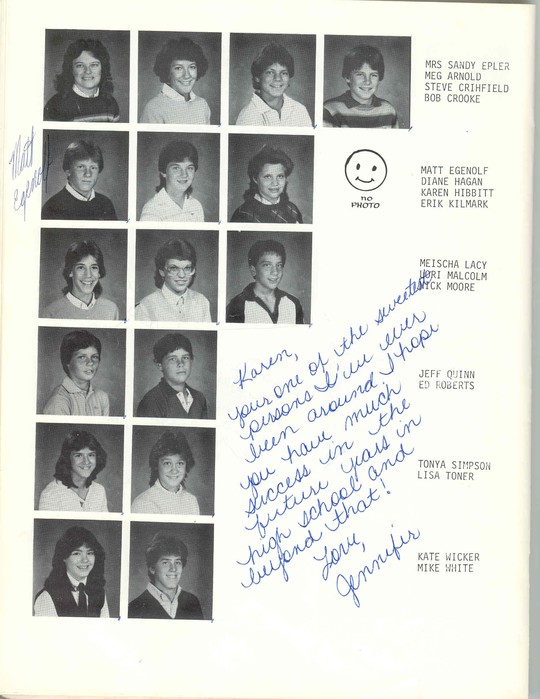 MRS SANDY EPLER
MEG ARNOLD
STEVE CRIHFIELD
BOB CROOKE
Matt
Egenolf
no
PHOTO
MATT EGENOLF
DIANE HAGAN
KAREN HIBBITT
ERIK KILMARK
MEISCHA LACY
LORI MALCOLM
NICK MOORE
JEFF QUINN
ED ROBERTS
TONYA SIMPSON
LISA TONER
KATE WICKER
MIKE WHITE
Karen,
your one of the sweetest
persons I've ever
been around I hope
you have much
success in the
future years in
high school and
beyond that!
Love,
Jennifer